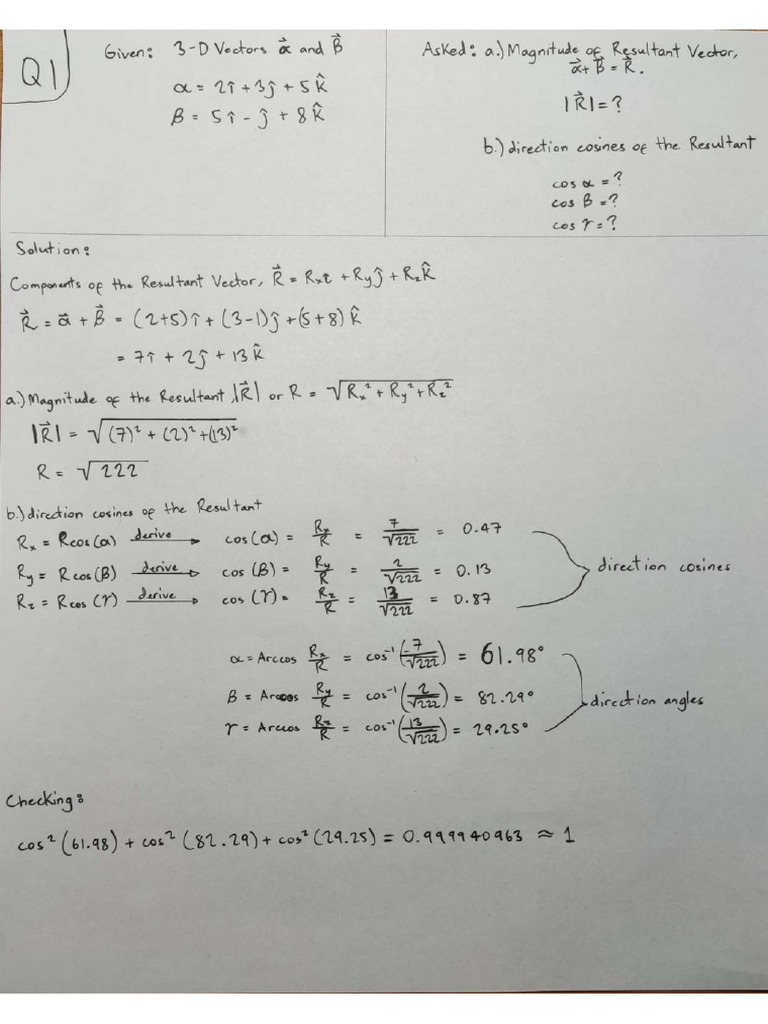 Q1
Given: 3-D Vectors α⃗ and β⃗
α = 2î + 3ĵ + 5k̂
β = 5î - ĵ + 8k̂
Asked: a.) Magnitude of Resultant Vector,
α⃗ + β⃗ = R⃗.
|R⃗| = ?
b.) direction cosines of the Resultant
cos α = ?
cos β = ?
cos γ = ?
Solution:
Components of the Resultant Vector, R⃗ = Rxî + Ryĵ + Rzk̂
R⃗ = α⃗ + β⃗ = (2+5)î + (3-1)ĵ + (5+8)k̂
= 7î + 2ĵ + 13k̂
a.) Magnitude of the Resultant, |R⃗| or R = √(Rx² + Ry² + Rz²)
|R⃗| = √((7)² + (2)² + (13)²)
R = √222
b.) direction cosines of the Resultant
Rx = Rcos(α) derive → cos(α) = Rx/R = 7/√222 = 0.47
Ry = Rcos(β) derive → cos(β) = Ry/R = 2/√222 = 0.13
Rz = Rcos(γ) derive → cos(γ) = Rz/R = 13/√222 = 0.87
direction cosines
α = Arccos Rx/R = cos⁻¹(7/√222) = 61.98°
β = Arccos Ry/R = cos⁻¹(2/√222) = 82.29°
γ = Arccos Rz/R = cos⁻¹(13/√222) = 29.25°
direction angles
Checking:
cos²(61.98) + cos²(82.29) + cos²(29.25) = 0.999940963 ≈ 1